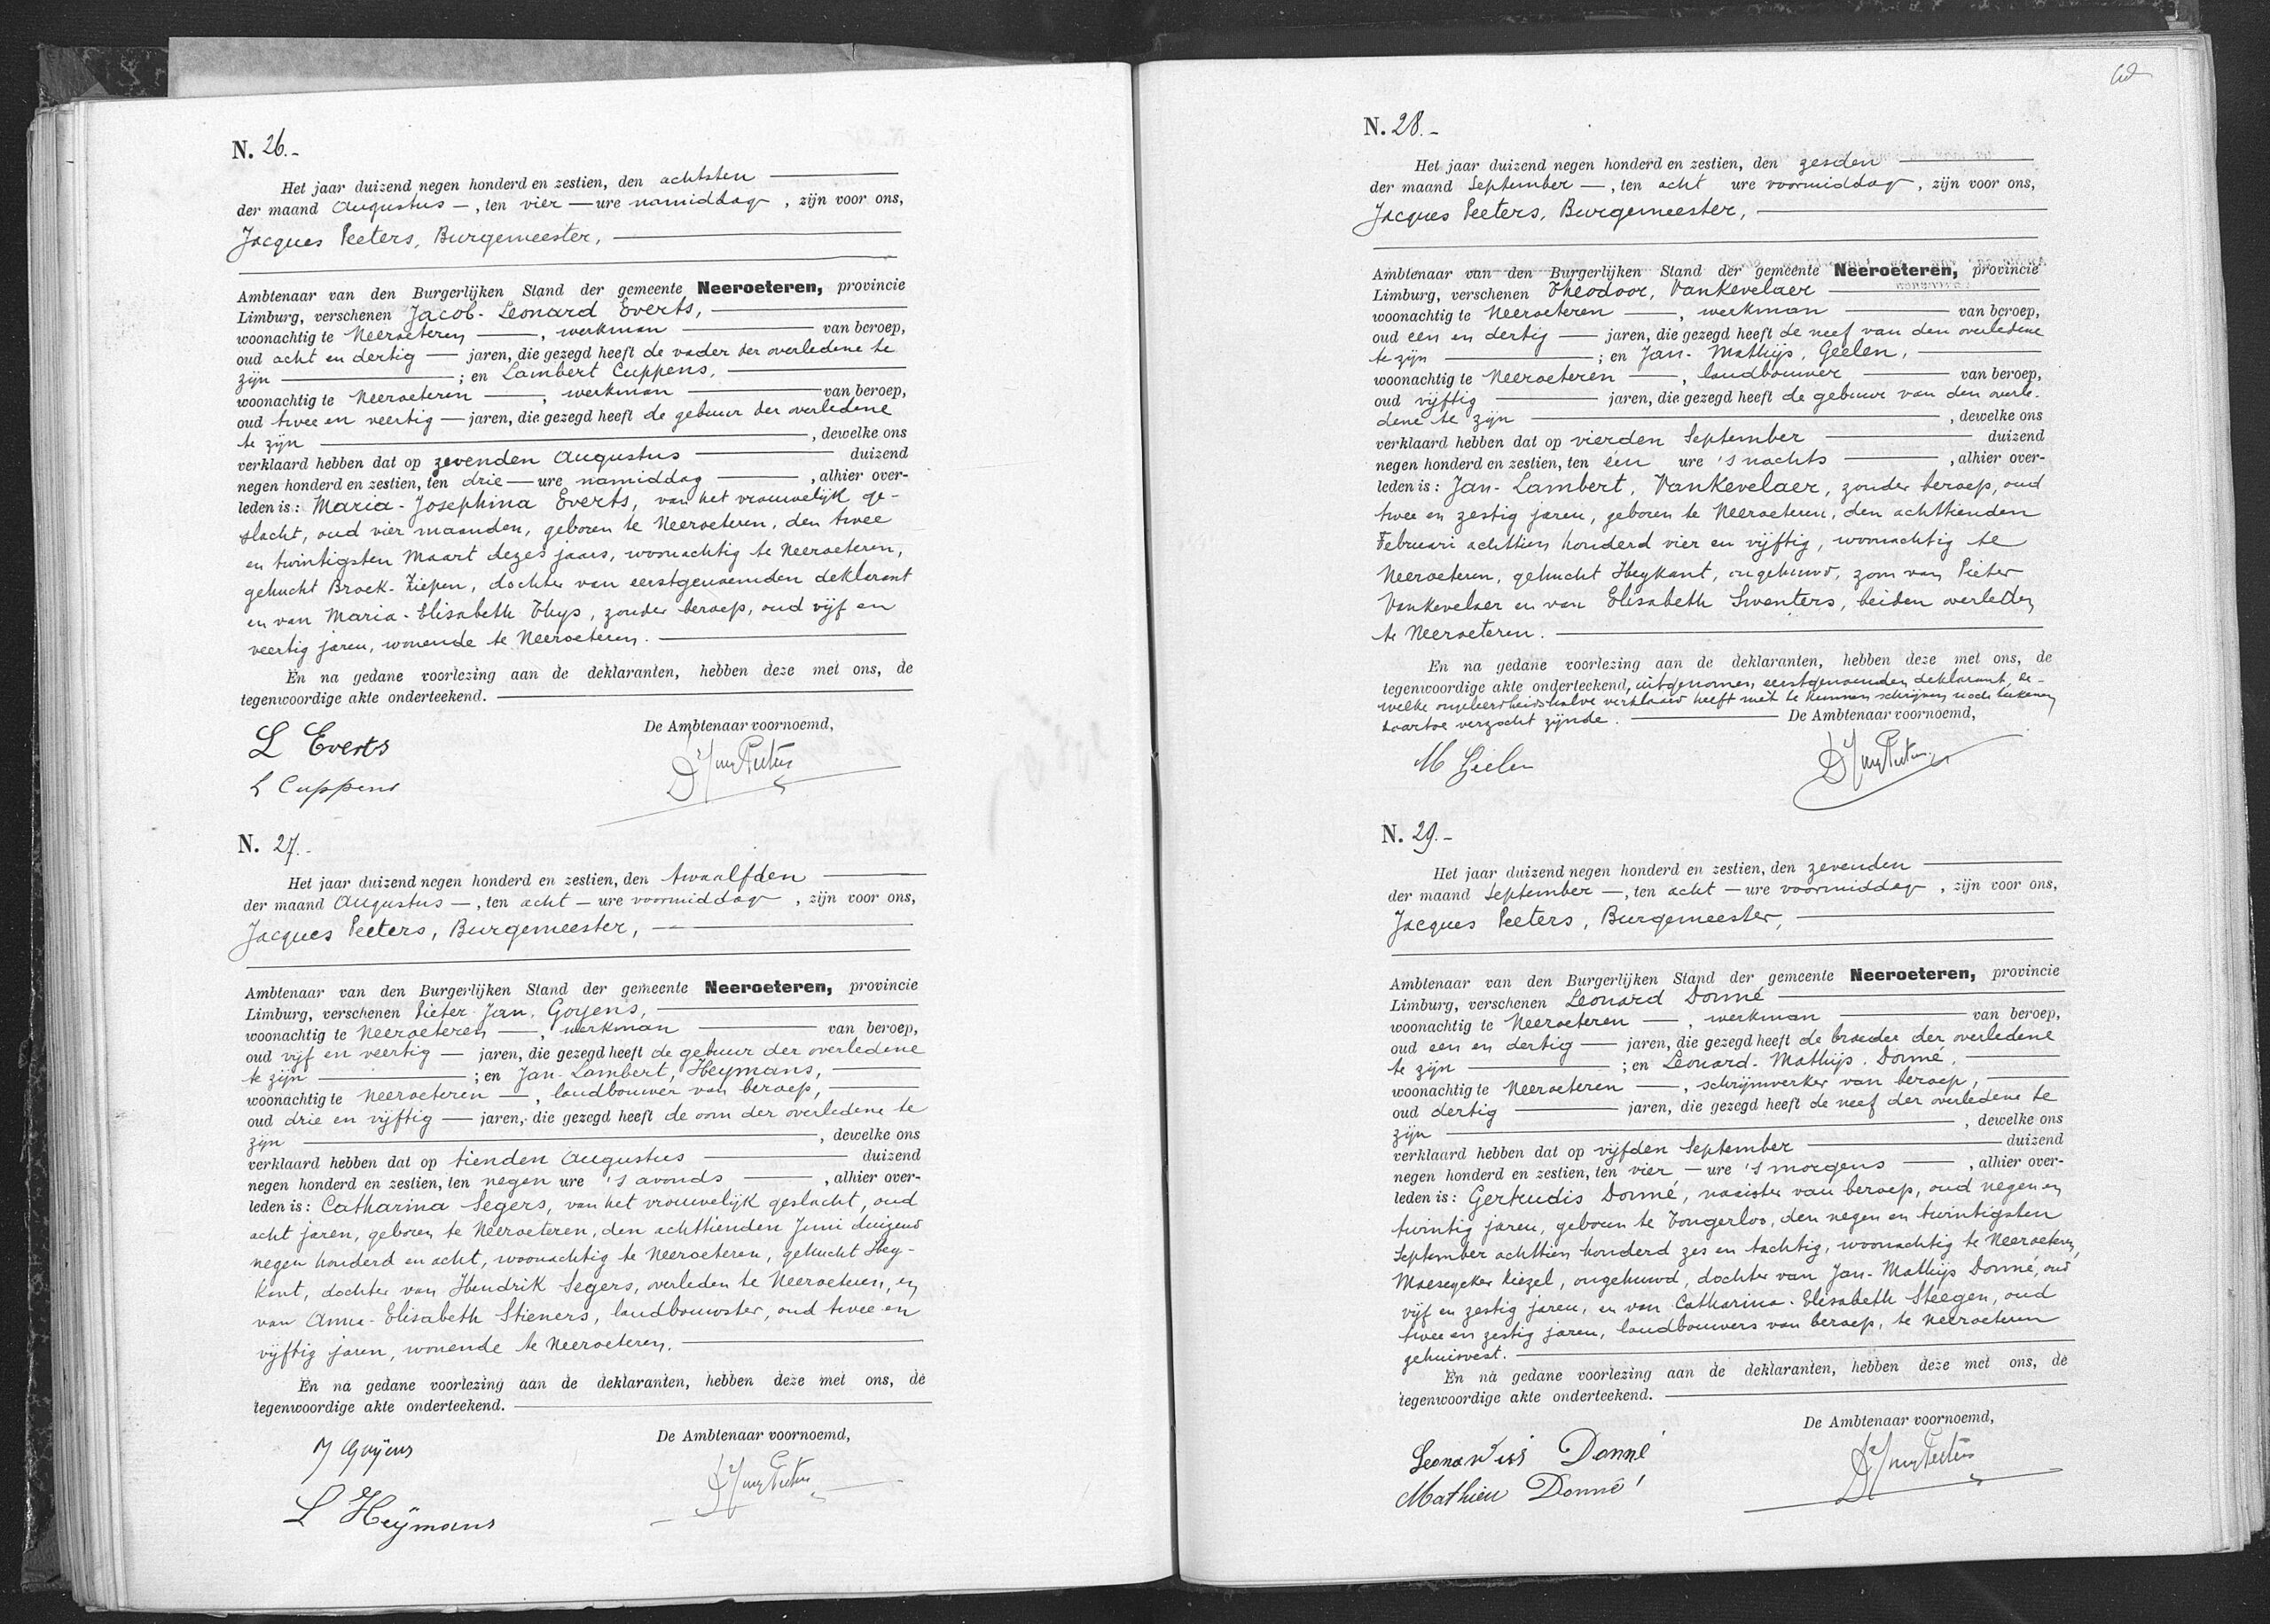 N. 26.-
Het jaar duizend negen honderd en zestien, den achtsten
der maand Augustus —, ten vier — ure namiddag, zijn voor ons,
Jacques Peeters, Burgemeester,
Ambtenaar van den Burgerlijken Stand der gemeente Neeroeteren, provincie
Limburg, verschenen Jacob-Leonard Everts,
woonachtig te Neeroeteren —, werkman — van beroep,
oud acht en dertig — jaren, die gezegd heeft de vader der overledene te
zijn — ; en Lambert Cuppens,
woonachtig te Neeroeteren —, werkman — van beroep,
oud twee en veertig — jaren, die gezegd heeft de gebuur der overledene
te zijn —, dewelke ons
verklaard hebben dat op zevenden Augustus — duizend
negen honderd en zestien, ten drie — ure namiddag —, alhier over-
leden is: Maria-Josephina Everts, van het vrouwelijk ge-
slacht, oud vier maanden, geboren te Neeroeteren, den twee
en twintigsten Maart dezes jaars, woonachtig te Neeroeteren,
gehucht Broek-Ziepen, dochter van eerstgenoemden deklarant
en van Maria-Elisabeth Thys, zonder beroep, oud vijf en
veertig jaren, wonende te Neeroeteren.
En na gedane voorlezing aan de deklaranten, hebben deze met ons, de
tegenwoordige akte onderteekend.
De Ambtenaar voornoemd,
L Everts
L Cuppens
N. 27.-
Het jaar duizend negen honderd en zestien, den twaalfden
der maand Augustus —, ten acht — ure voormiddag, zijn voor ons,
Jacques Peeters, Burgemeester,
Ambtenaar van den Burgerlijken Stand der gemeente Neeroeteren, provincie
Limburg, verschenen Pieter-Jan, Goyens,
woonachtig te Neeroeteren —, werkman — van beroep,
oud vijf en veertig — jaren, die gezegd heeft de gebuur der overledene
te zijn — ; en Jan-Lambert, Heymans,
woonachtig te Neeroeteren —, landbouwer van beroep,
oud drie en vijftig — jaren, die gezegd heeft de oom der overledene te
zijn —, dewelke ons
verklaard hebben dat op tienden Augustus — duizend
negen honderd en zestien, ten negen ure 's avonds —, alhier over-
leden is: Catharina Segers, van het vrouwelijk geslacht, oud
acht jaren, geboren te Neeroeteren, den achttienden Juni duizend
negen honderd en acht, woonachtig te Neeroeteren, gehucht Hey-
kant, dochter van Hendrik Segers, overleden te Neeroeteren, en
van Anna-Elisabeth Stieners, landbouwster, oud twee en
vijftig jaren, wonende te Neeroeteren.
En na gedane voorlezing aan de deklaranten, hebben deze met ons, de
tegenwoordige akte onderteekend.
De Ambtenaar voornoemd,
J Goÿens
L Heÿmans
N. 28.-
Het jaar duizend negen honderd en zestien, den zesden
der maand September —, ten acht ure voormiddag, zijn voor ons,
Jacques Peeters, Burgemeester,
Ambtenaar van den Burgerlijken Stand der gemeente Neeroeteren, provincie
Limburg, verschenen Theodoor, Vankevelaer
woonachtig te Neeroeteren —, werkman — van beroep,
oud een en dertig — jaren, die gezegd heeft de neef van den overledene
te zijn — ; en Jan-Mathijs, Geelen,
woonachtig te Neeroeteren —, landbouwer — van beroep,
oud vijftig — jaren, die gezegd heeft de gebuur van den overle-
dene te zijn —, dewelke ons
verklaard hebben dat op vierden September — duizend
negen honderd en zestien, ten één ure 's nachts —, alhier over-
leden is: Jan-Lambert, Vankevelaer, zonder beroep, oud
twee en zestig jaren, geboren te Neeroeteren, den achttienden
Februari achttien honderd vier en vijftig, woonachtig te
Neeroeteren, gehucht Heykant, ongehuwd, zoon van Pieter
Vankevelaer en van Elisabeth Swenters, beiden overleden
te Neeroeteren.
En na gedane voorlezing aan de deklaranten, hebben deze met ons, de
tegenwoordige akte onderteekend, uitgenomen eerstgenoemden deklarant, de-
welke ongeleerdheidshalve verklaard heeft niet te kunnen schrijven noch teekenen
daartoe verzocht zijnde. — De Ambtenaar voornoemd,
M Gielen
N. 29.-
Het jaar duizend negen honderd en zestien, den zevenden
der maand September —, ten acht — ure voormiddag, zijn voor ons,
Jacques Peeters, Burgemeester,
Ambtenaar van den Burgerlijken Stand der gemeente Neeroeteren, provincie
Limburg, verschenen Leonard Donné
woonachtig te Neeroeteren —, werkman — van beroep,
oud een en dertig — jaren, die gezegd heeft de broeder der overledene
te zijn — ; en Leonard-Mathijs, Donné,
woonachtig te Neeroeteren —, schrijnwerker van beroep,
oud dertig — jaren, die gezegd heeft de neef der overledene te
zijn —, dewelke ons
verklaard hebben dat op vijfden September — duizend
negen honderd en zestien, ten vier — ure 's morgens —, alhier over-
leden is: Gertrudis Donné, naaister van beroep, oud negen en
twintig jaren, geboren te Tongerloo, den negen en twintigsten
September achttien honderd zes en tachtig, woonachtig te Neeroeteren,
Maeseycker Kiezel, ongehuwd, dochter van Jan-Mathijs Donné, oud
vijf en zestig jaren, en van Catharina-Elisabeth Steegen, oud
twee en zestig jaren, landbouwers van beroep, te Neeroeteren
gehuisvest.
En na gedane voorlezing aan de deklaranten, hebben deze met ons, de
tegenwoordige akte onderteekend.
De Ambtenaar voornoemd,
Leonardus Donné
Mathieu Donné